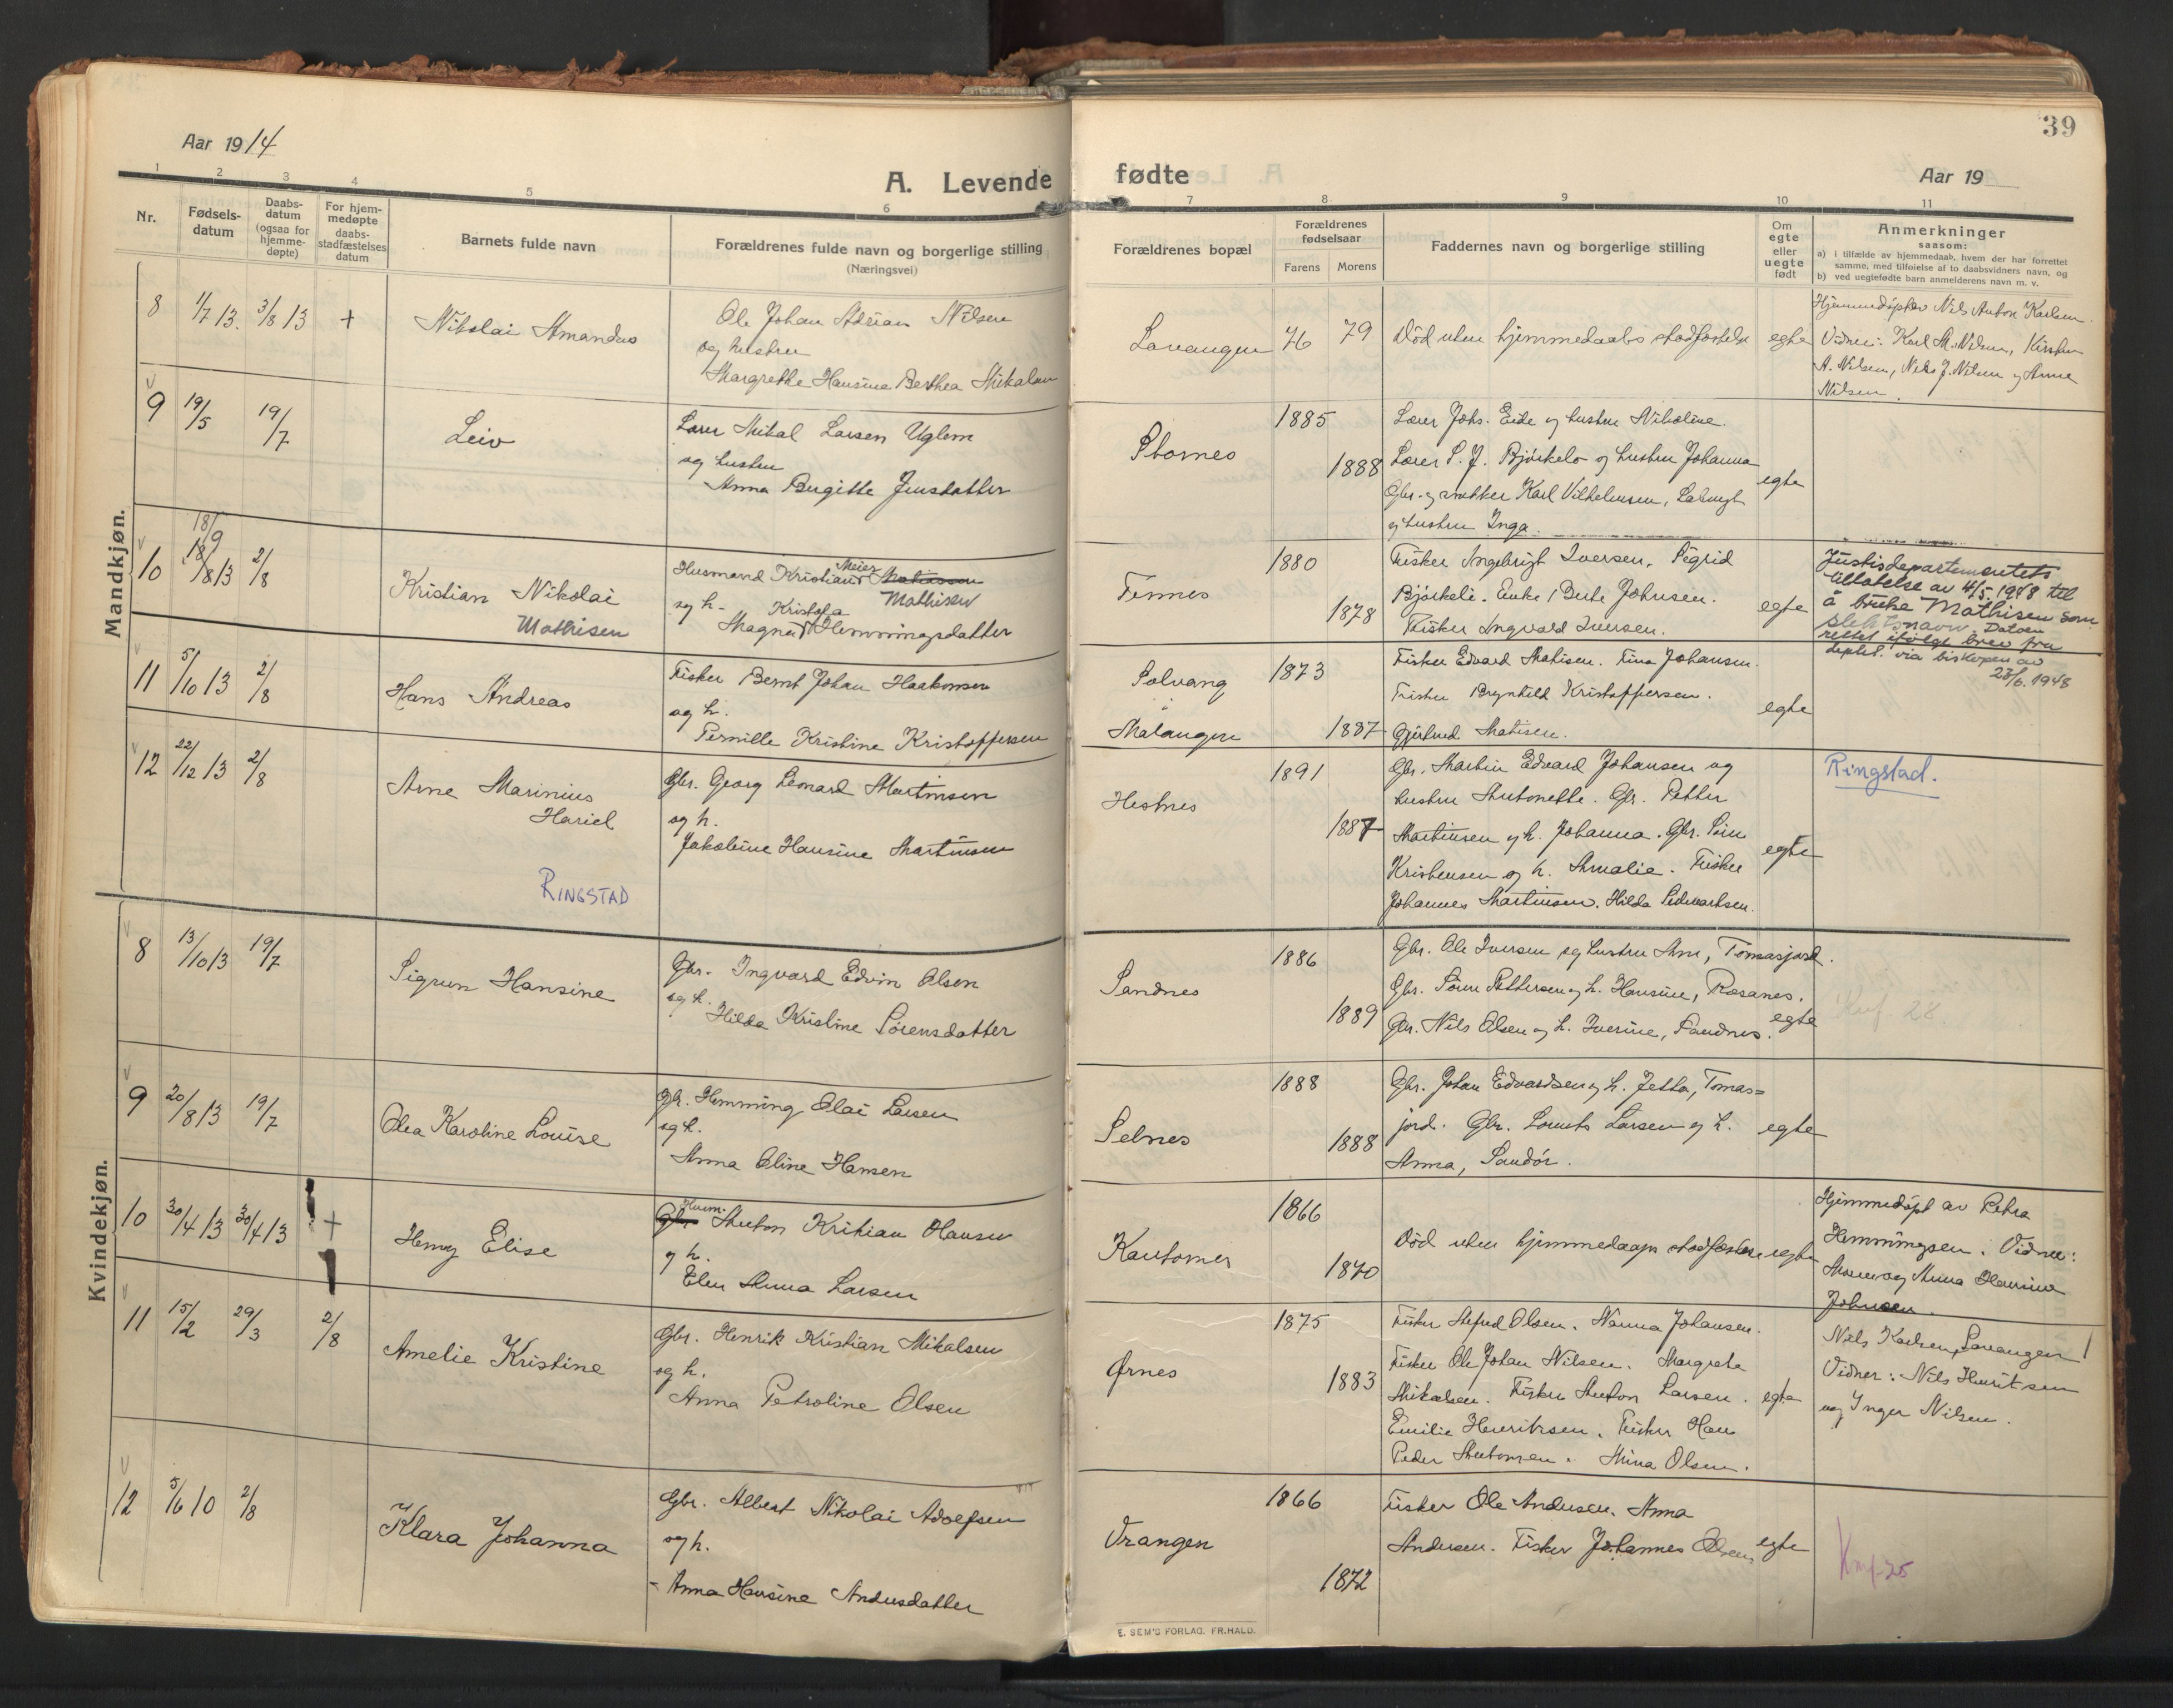 Aar 1914
A. Levende
1 2 3 4 5 6
Nr.
Fødsels-
datum
Daabs-
datum
(ogsaa for
hjemme-
døpte)
For hjem-
medøpte
daabs-
stadfæstelses
datum
Barnets fulde navn
Forældrenes fulde navn og borgerlige stilling
(Næringsvei)
Mandkjøn.
8 1/7 13. 3/8 13 + Nikolai Amandus
Ole Johan Adrian Nilsen
og hustru
Margrethe Hansine Berthea Mikalsen
9 19/5 19/7 Leiv
Lærer Mikal Larsen Uglem
og hustru
Anna Birgitte Jensdatter
18/9
10 18/8 13 2/8 Kristian Nikolai
Mathisen
Husmand Kristian Meier Mathisen
og h. Kristofa
Magna Hemmingsdatter
11 5/10 13 2/8 Hans Andreas
Fisker Bernt Johan Haakonsen
og h.
Pernille Kristine Kristoffersen
12 22/12 13 2/8 Arne Marinius
Hariel
RINGSTAD
Gbr. Georg Leonard Martinsen
og h.
Jakobine Hansine Martinsen
Kvindekjøn.
8 13/10 13 19/7 Sigrun Hansine
Gbr. Ingvard Edvin Olsen
og h.
Hilda Kristine Sørensdatter
9 20/8 13 19/7 Olea Karoline Louise
Gbr. Hemming Olai Larsen
og h.
Anna Oline Hansen
10 30/4 13 30/4 13 + Henny Elise
Husm. Anton Kristian Hansen
og h.
Elen Anna Larsen
11 15/2 29/3 2/8 Amelie Kristine
Gbr. Henrik Kristian Mikalsen
og h.
Anna Petroline Olsen
12 5/6 10 2/8 Klara Johanna
Gbr. Albert Nikolai Adolfsen
og h.
Anna Hansine Andersdatter
39
fødte
Aar 19
7 8 9 10 11
Forældrenes bopæl
Forældrenes
fødselsaar
Farens Morens
Faddernes navn og borgerlige stilling
Om
egte
eller
uegte
født
Anmerkninger
saasom:
a) i tilfælde av hjemmedaab, hvem der har forrettet
samme, med tilføielse af to daabsvidners navn, og
b) ved uegtefødte barn anmelderens navn m. v.
Lavangen 76 79 Død uten hjemmedaabs stadfæstelse egte
Hjemmedøpt av Nils Anton Karlsen.
Vidner: Karl M. Nilsen, Kirsten
A. Nilsen, Nils J. Nilsen og Anna
Nilsen.
Stornes 1885 1888
Lærer Johs. Eide og hustru Nikoline.
Lærer S. J. Bjørkelo og hustru Johanna
Gbr. og snekker Karl Vilhelmsen,
og hustru Inga.
egte
Finnes 1880 1878
Fisker Ingebrigt Iversen. Sigrid
Bjørkeli. Enke Berte Johnsen.
Fisker Ingvald Iversen.
egte
Justisdepartementets
tillatelse av 4/5.1948 til
å bruke Mathisen som
slektsnavn. Datoen
rettet ifølge brev fra
deptet. via biskopen av
23/6.1948
Solvang
i
Malangen
1873 1887
Fisker Edvard Matisen. Tina Johansen.
Fisker Brynhild Kristoffersen.
Gjertrud Matisen.
egte
Hestnes 1891 1887
Gbr. Martin Edvard Johansen og
hustru Antonette. Gbr. Petter
Martinsen og h. Johanna. Gbr. Sørn
Kristensen og h. Amalie. Fisker
Johannes Martinsen. Hilda Sedvartsen.
egte
Ringstad.
Sandnes 1886 1889
Gbr. Ole Iversen og hustru Ane, Tomasjord.
Gbr. Sørn Pettersen og h. Hansine, Rosanes.
Gbr. Nils Olsen og h. Iverine, Sandnes.
egte
Knf. 28
Selnes 1888 1888
Gbr. Johan Edvardsen og h. Jetta, Tomas=
jord. Gbr. Lorents Larsen og h.
Anna, Sandør.
egte
Kantornes 1866 1870
Død uten hjemmedaaps stadfæstelse egte
Hjemmedøpt av Petra
Hemmingsen. Vidner:
Moren og Anna Hansine
Johnsen.
Ørnes 1875 1883
Fisker Alfred Olsen. Nanna Johansen.
Fisker Ole Johan Nilsen. Margrete
Mikalsen. Fisker Anton Larsen.
Emilie Henriksen. Fisker Hans
Peder Antonsen. Mina Olsen.
egte
Nils Karlsen, Lavangen
Vidner: Nils Henriksen
og Inger Nilsen.
Vrangen 1866 1872
Fisker Ole Andersen. Anna
Andersen. Fisker Johannes Olsen
egte
Knf. 25
E. SEM'S FORLAG, FR.HALD.